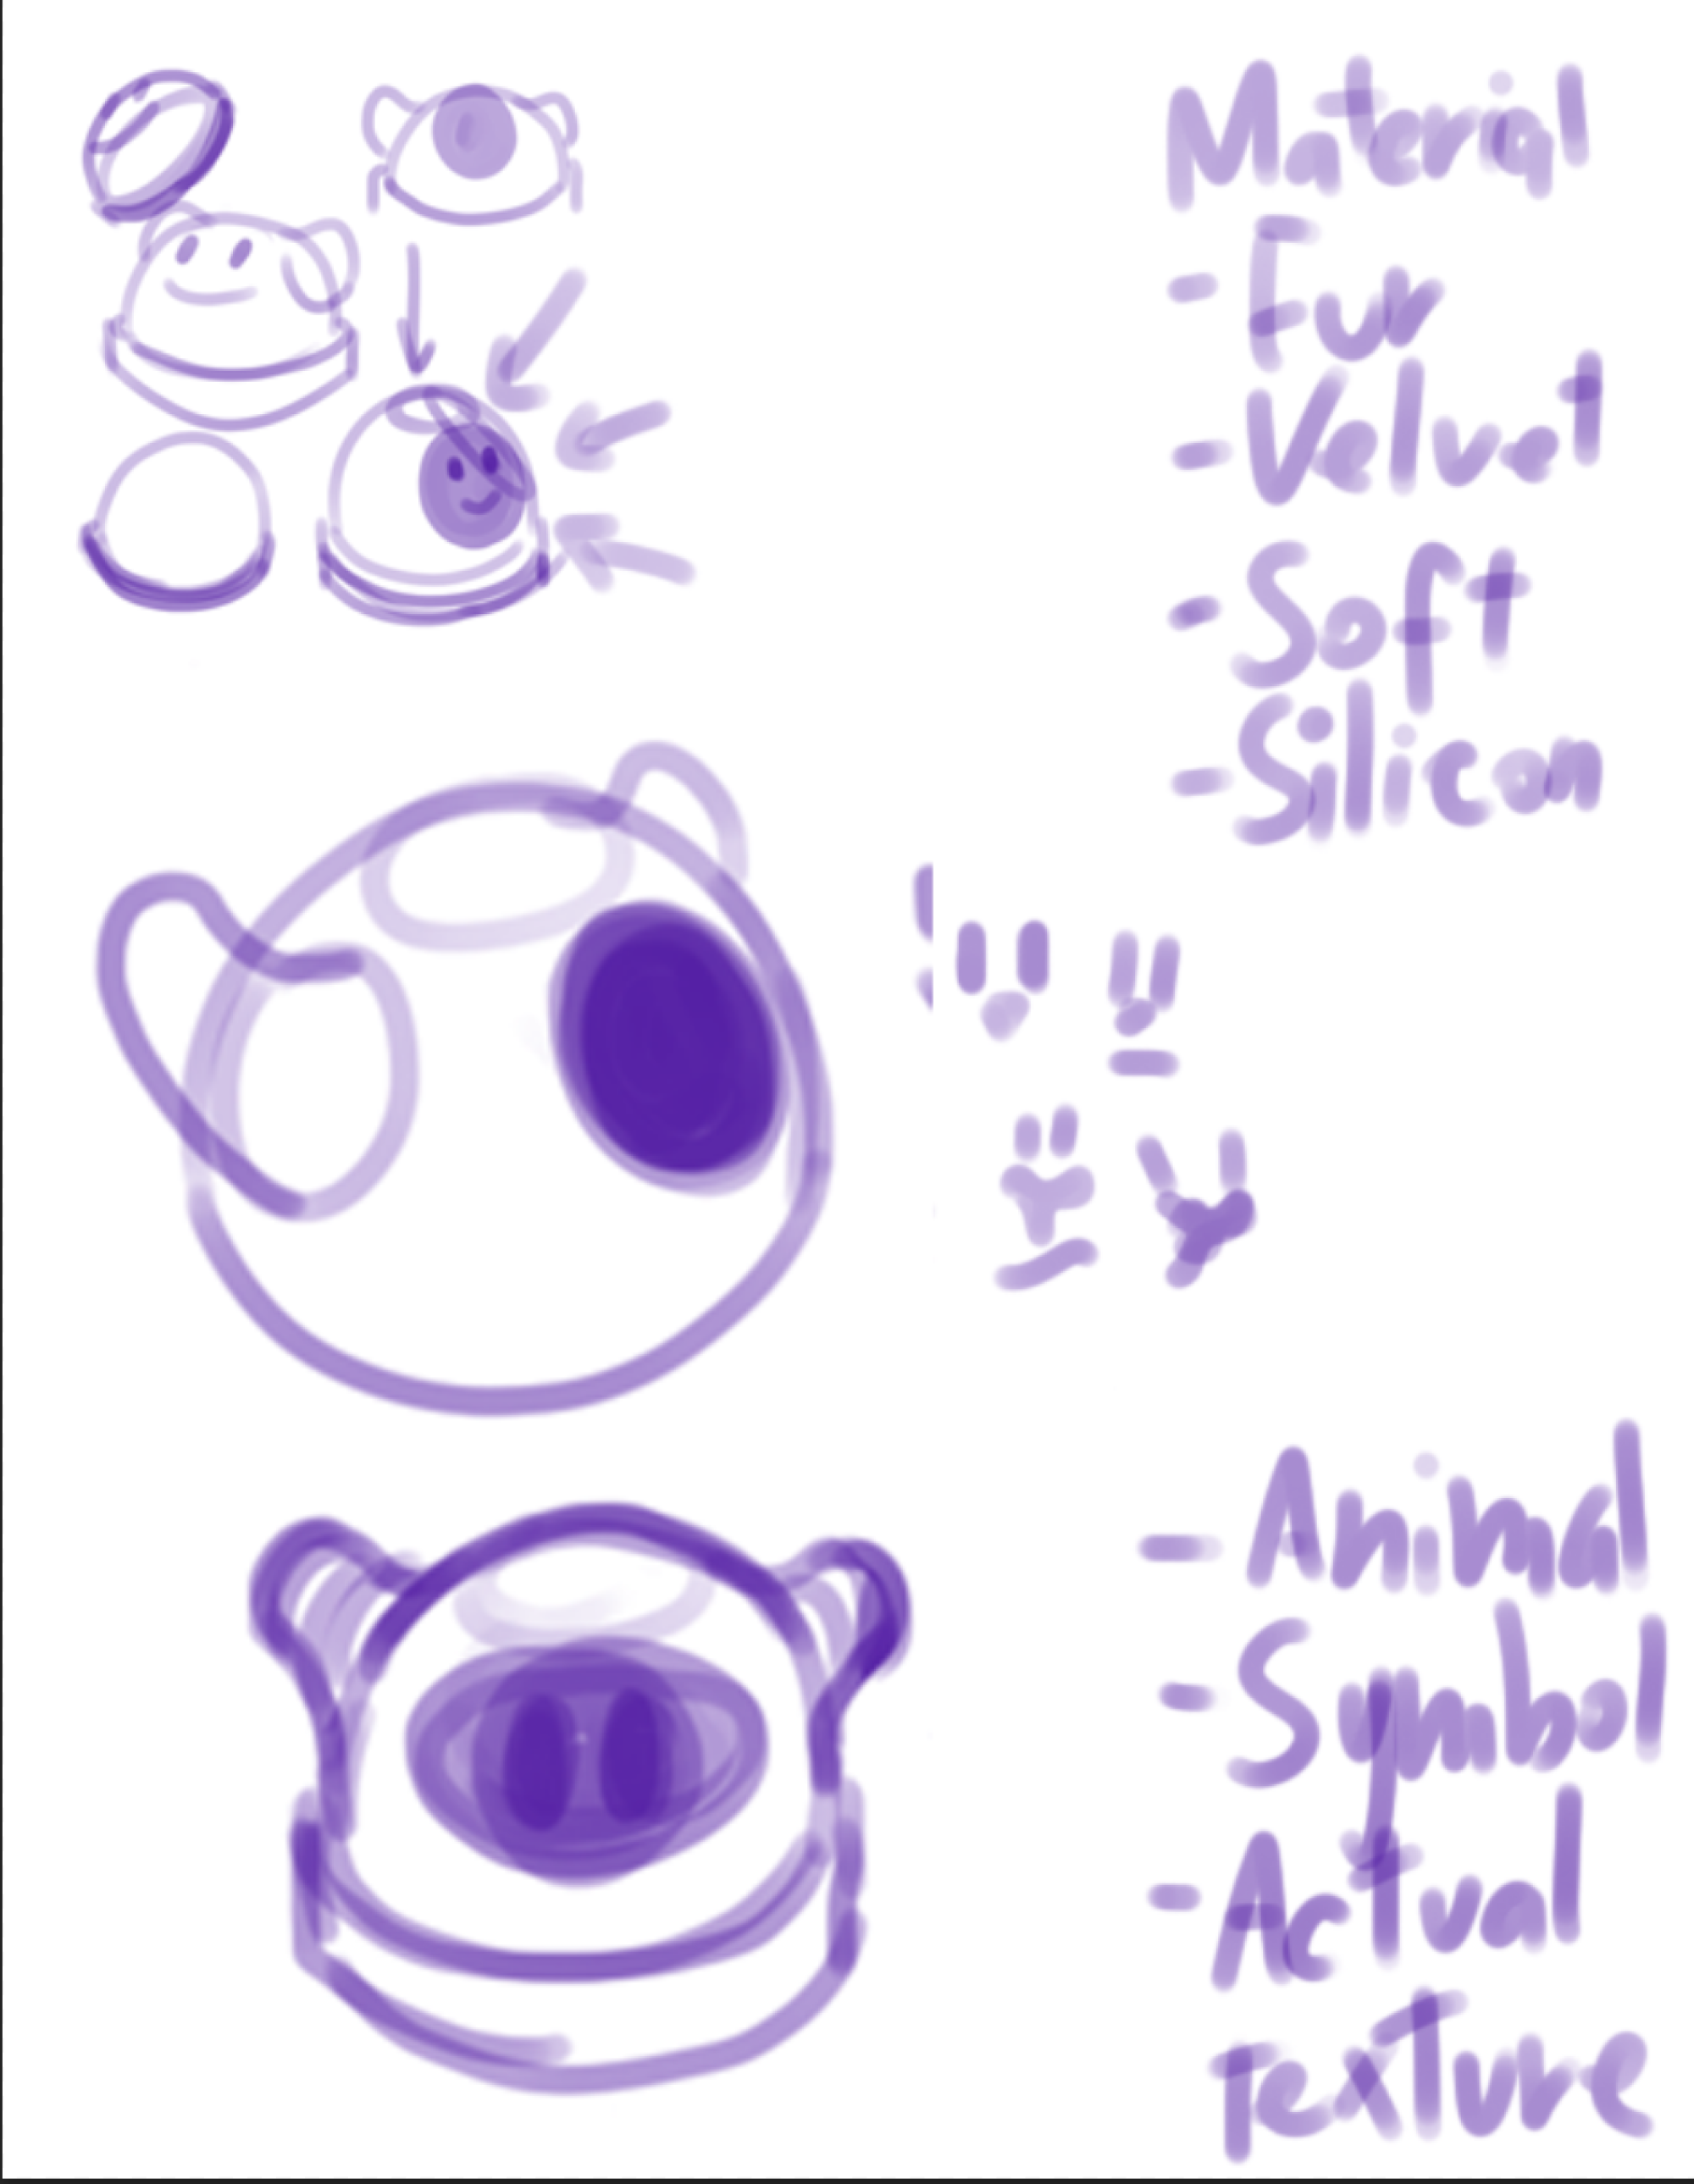 Material
- Fur
- Velvet
- Soft
- Silicon
- Animal
- Symbol
- Actual
Texture